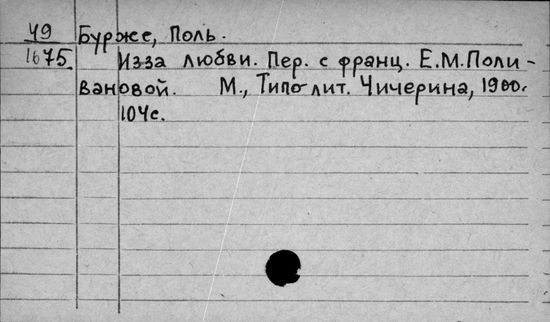 49 Бурже, Поль.
1675. Изза любви. Пер. с франц. Е.М.Поли-
вановой. М., Типо-лит. Чичерина, 1900.
104с.